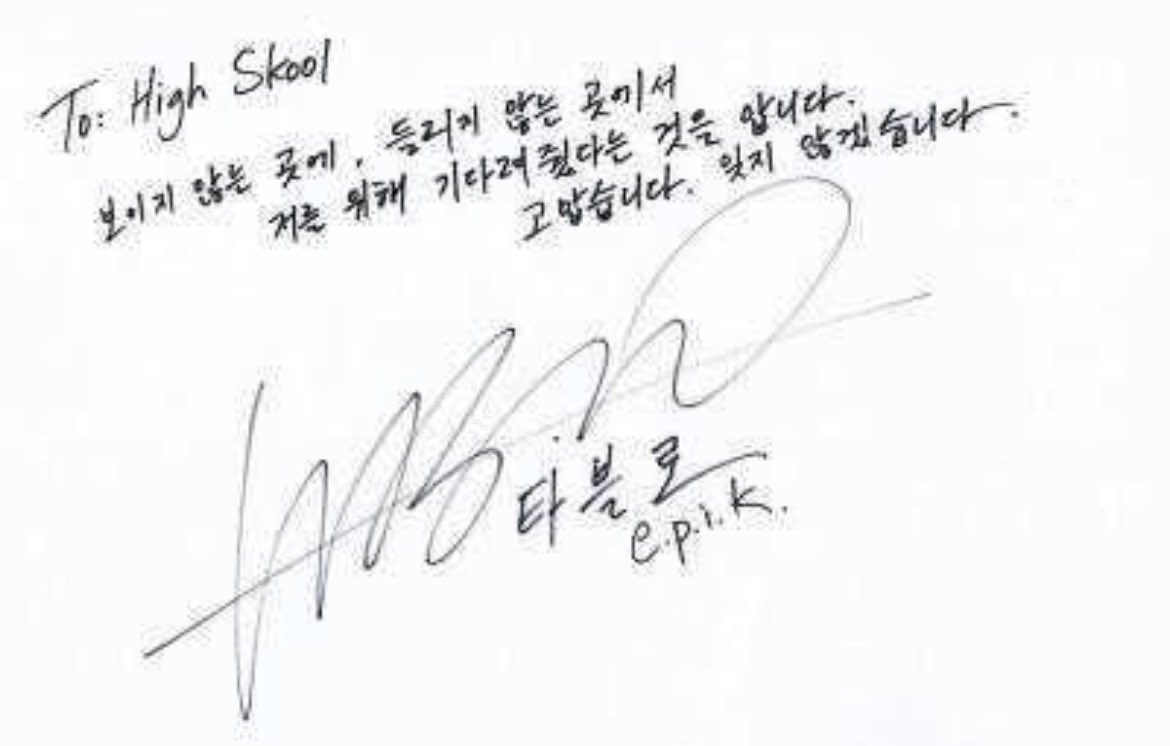 To: High Skool
보이지 않는 곳에, 들리지 않는 곳에서
저를 위해 기다려줬다는 것을 압니다.
고맙습니다. 잊지 않겠습니다.
타블로
e.p.i.k.